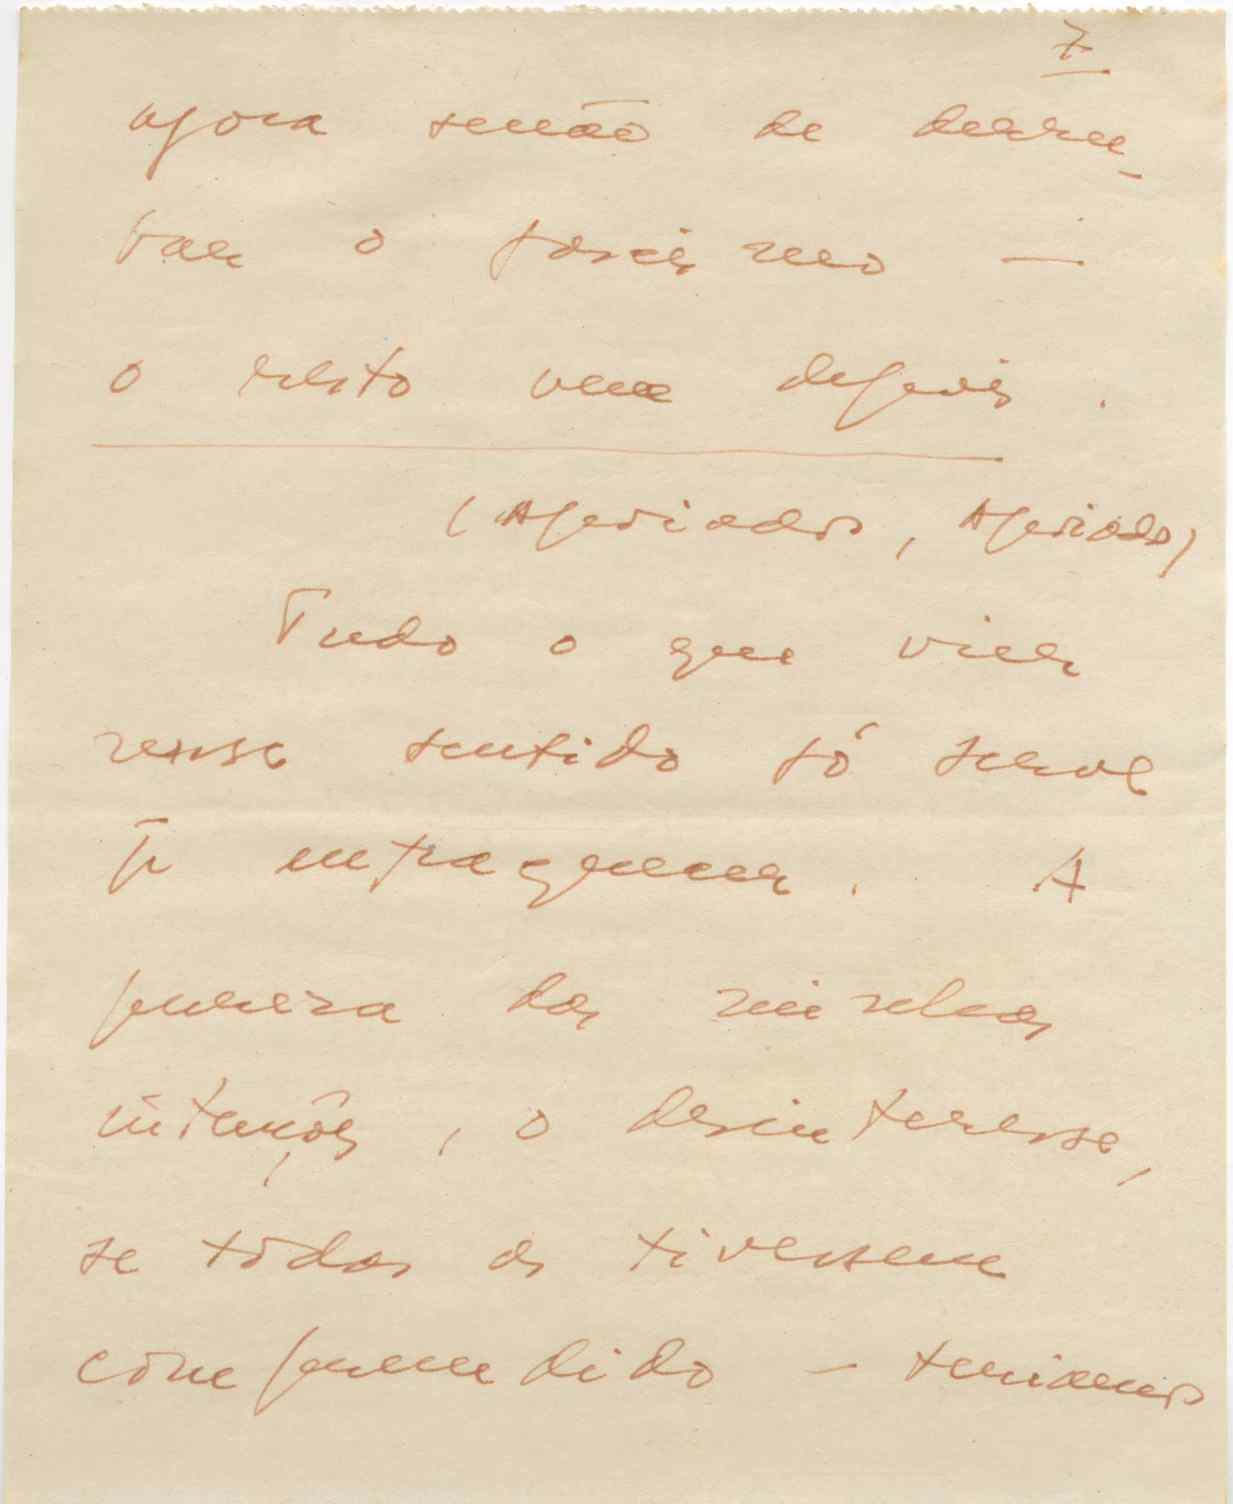 7
agora senão de derru-
bar o fascismo —
o resto vem depois.
(Apoiados, Apoiados)
Tudo o que vier
nesse sentido só serve
p. enfraquecer. A
pureza das minhas
intenções, o desinteresse,
se todos os tivessem
compreendido — teriamos